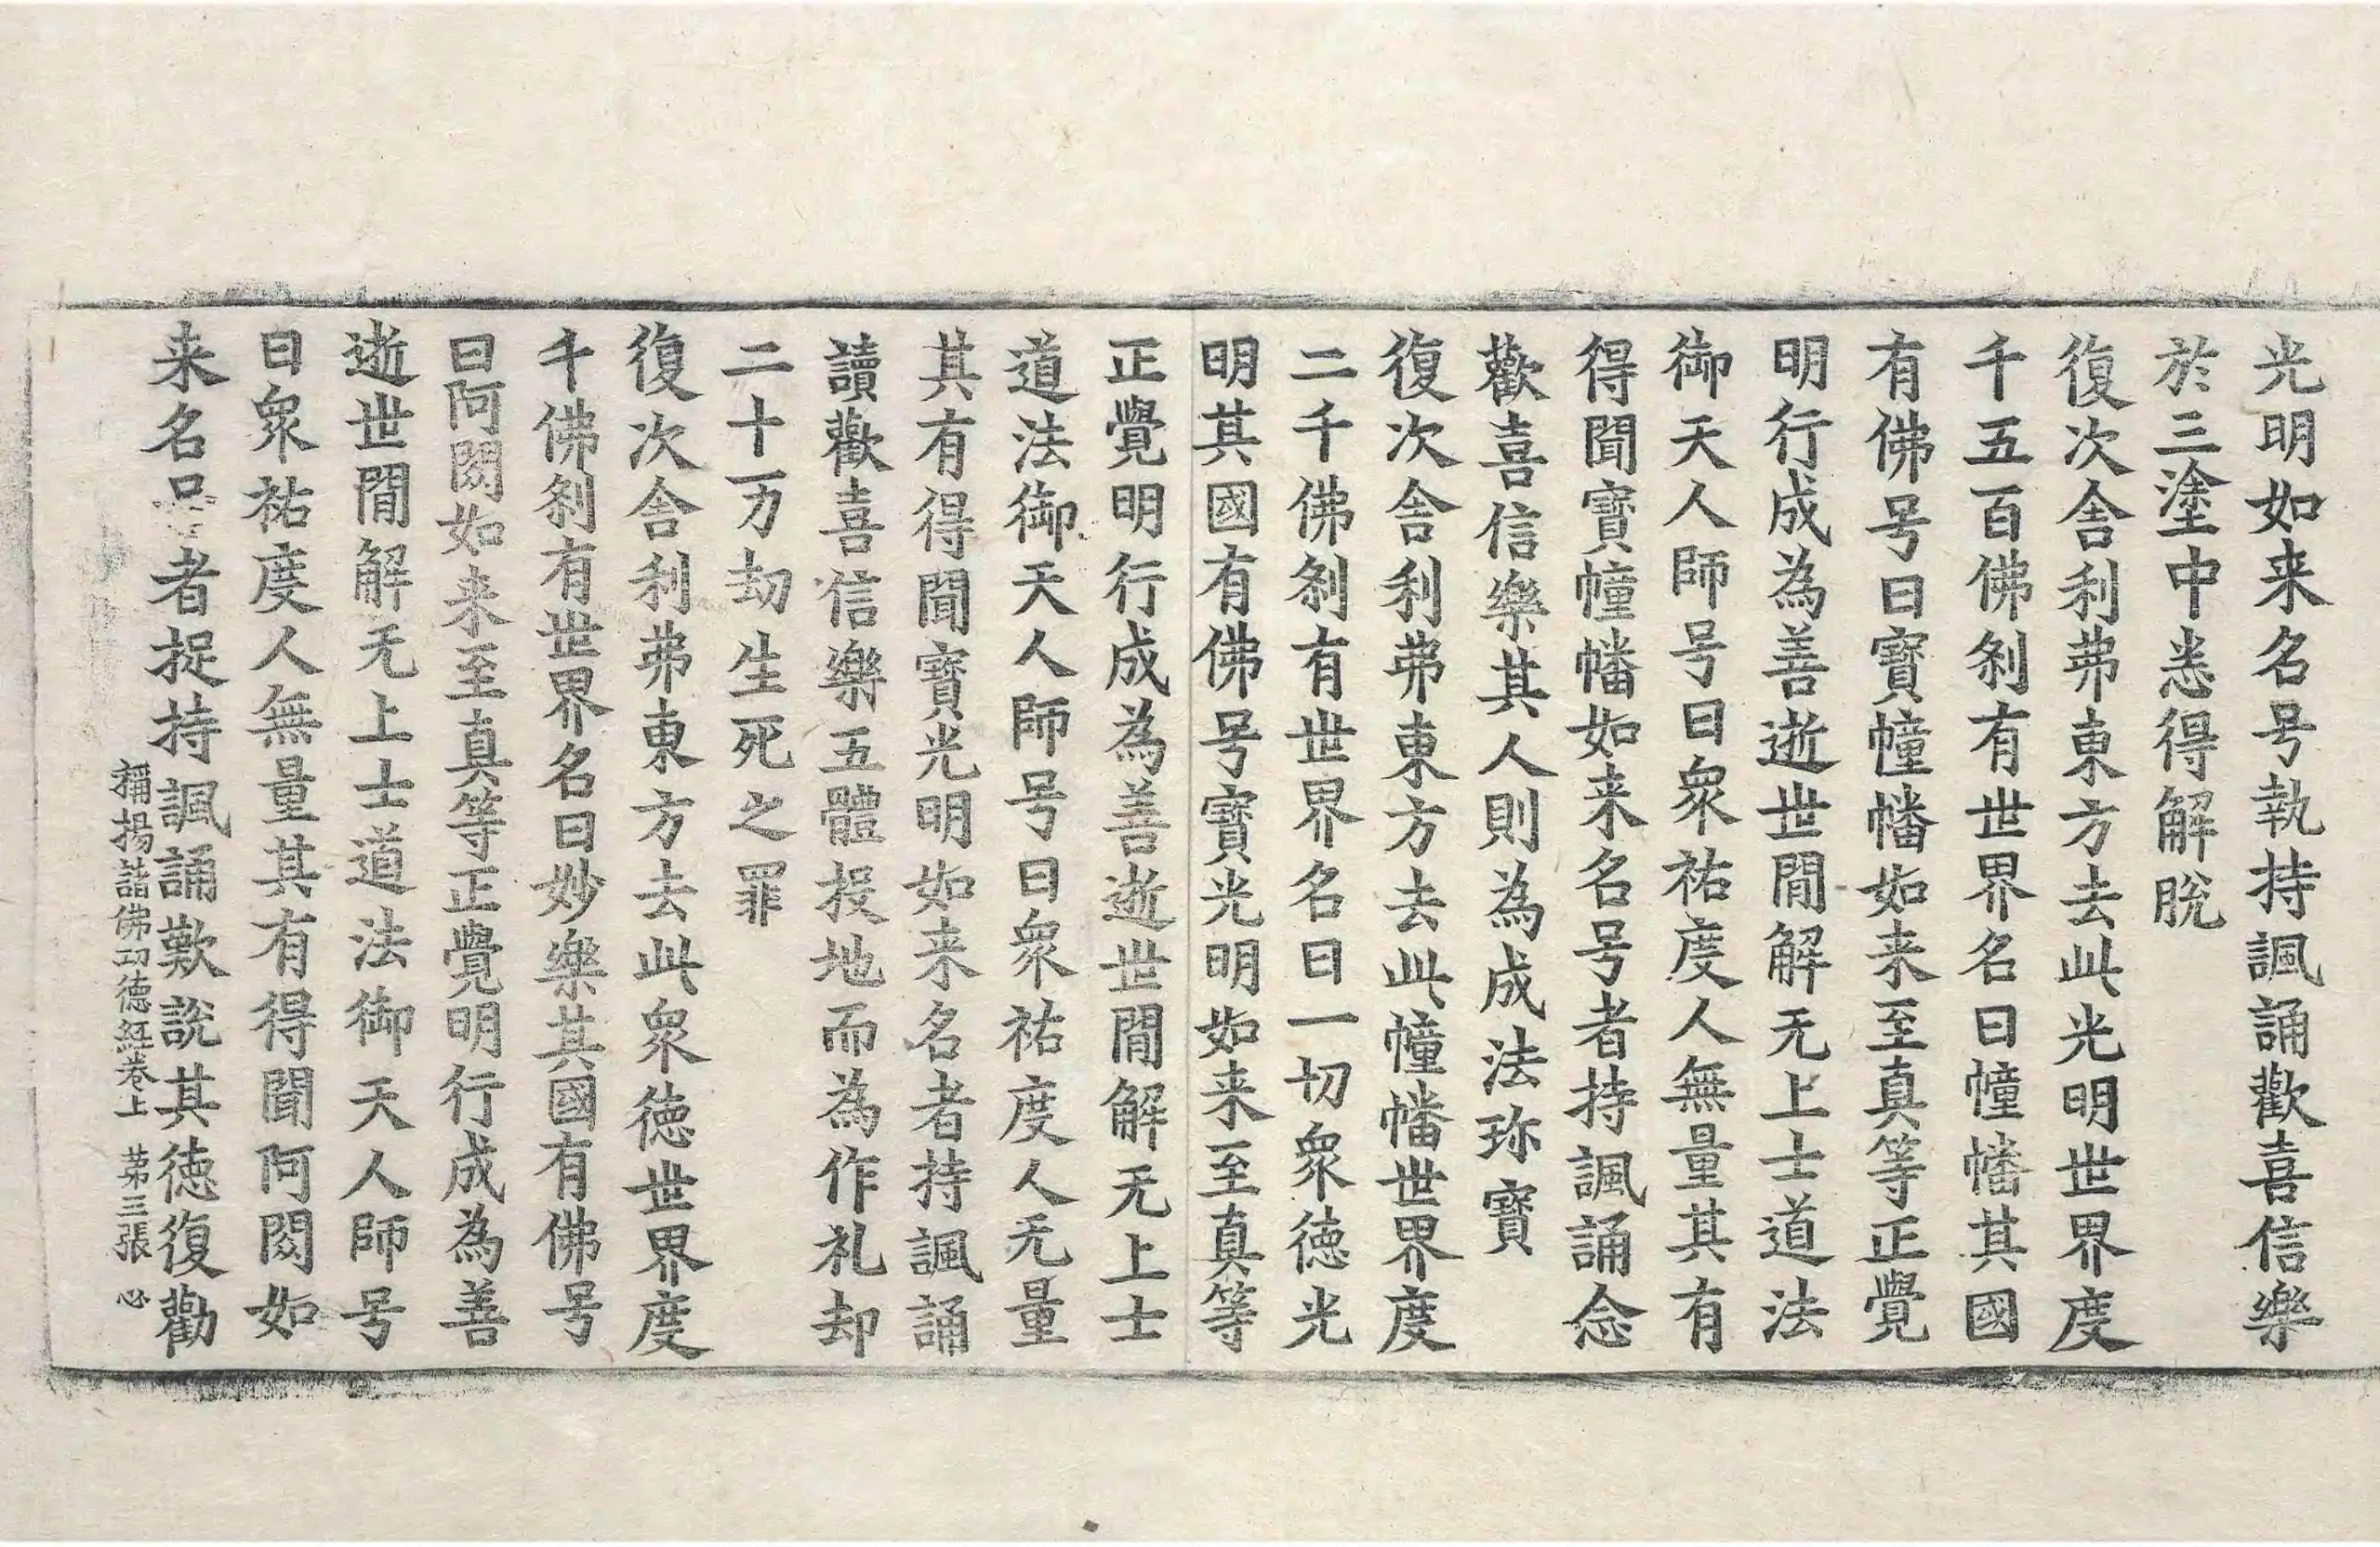 光明如来名号執持諷誦歡喜信樂
於三塗中悉得解脫
復次舍利弗東方去此光明世界度
千五百佛剎有世界名曰幢幡其國
有佛号曰寶幢幡如来至真等正覺
明行成為善逝世間解无上士道法
御天人師号曰衆祐度人無量其有
得聞寶幢幡如来名号者持諷誦念
歡喜信樂其人則為成法珎寶
復次舍利弗東方去此幢幡世界度
二千佛剎有世界名曰一切衆徳光
明其國有佛号寶光明如来至真等
正覺明行成為善逝世間解无上士
道法御天人師号曰衆祐度人无量
其有得聞寶光明如来名者持諷誦
讀歡喜信樂五體投地而為作礼却
二十万劫生死之罪
復次舍利弗東方去此衆徳世界度
千佛剎有世界名曰妙樂其國有佛号
曰阿閦如来至真等正覺明行成為善
逝世間解无上士道法御天人師号
曰衆祐度人無量其有得聞阿閦如
来名号者捉持諷誦歎說其徳復勸
稱揚諸佛功德經卷上 苐三張 必